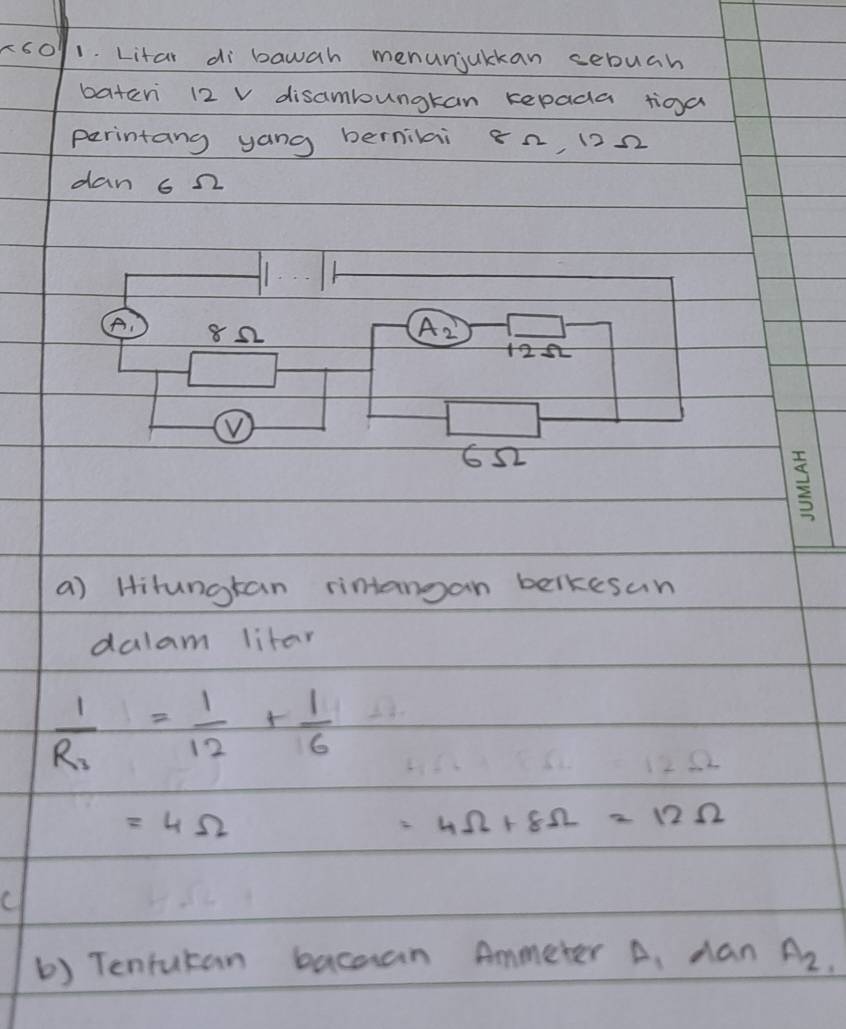 1. Litar di bawah menunjukkan sebuah
bateri 12 V disambungkan kepada tiga
perintang yang bernilai 8 Ω, 12 Ω
dan 6 Ω
A1 8 Ω A2 12 Ω
V
6 Ω
JUMLAH
a) Hitungkan rintangan berkesan
dalam litar
1/R = 1/12 + 1/6
= 4 Ω = 4Ω + 8Ω = 12 Ω
b) Tentukan bacaan Ammeter A1 dan A2.